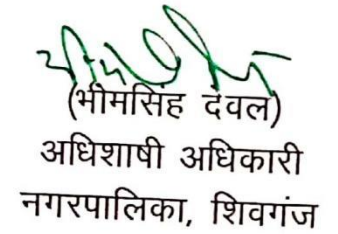 (भीमसिंह देवल)
अधिशाषी अधिकारी
नगरपालिका, शिवगंज